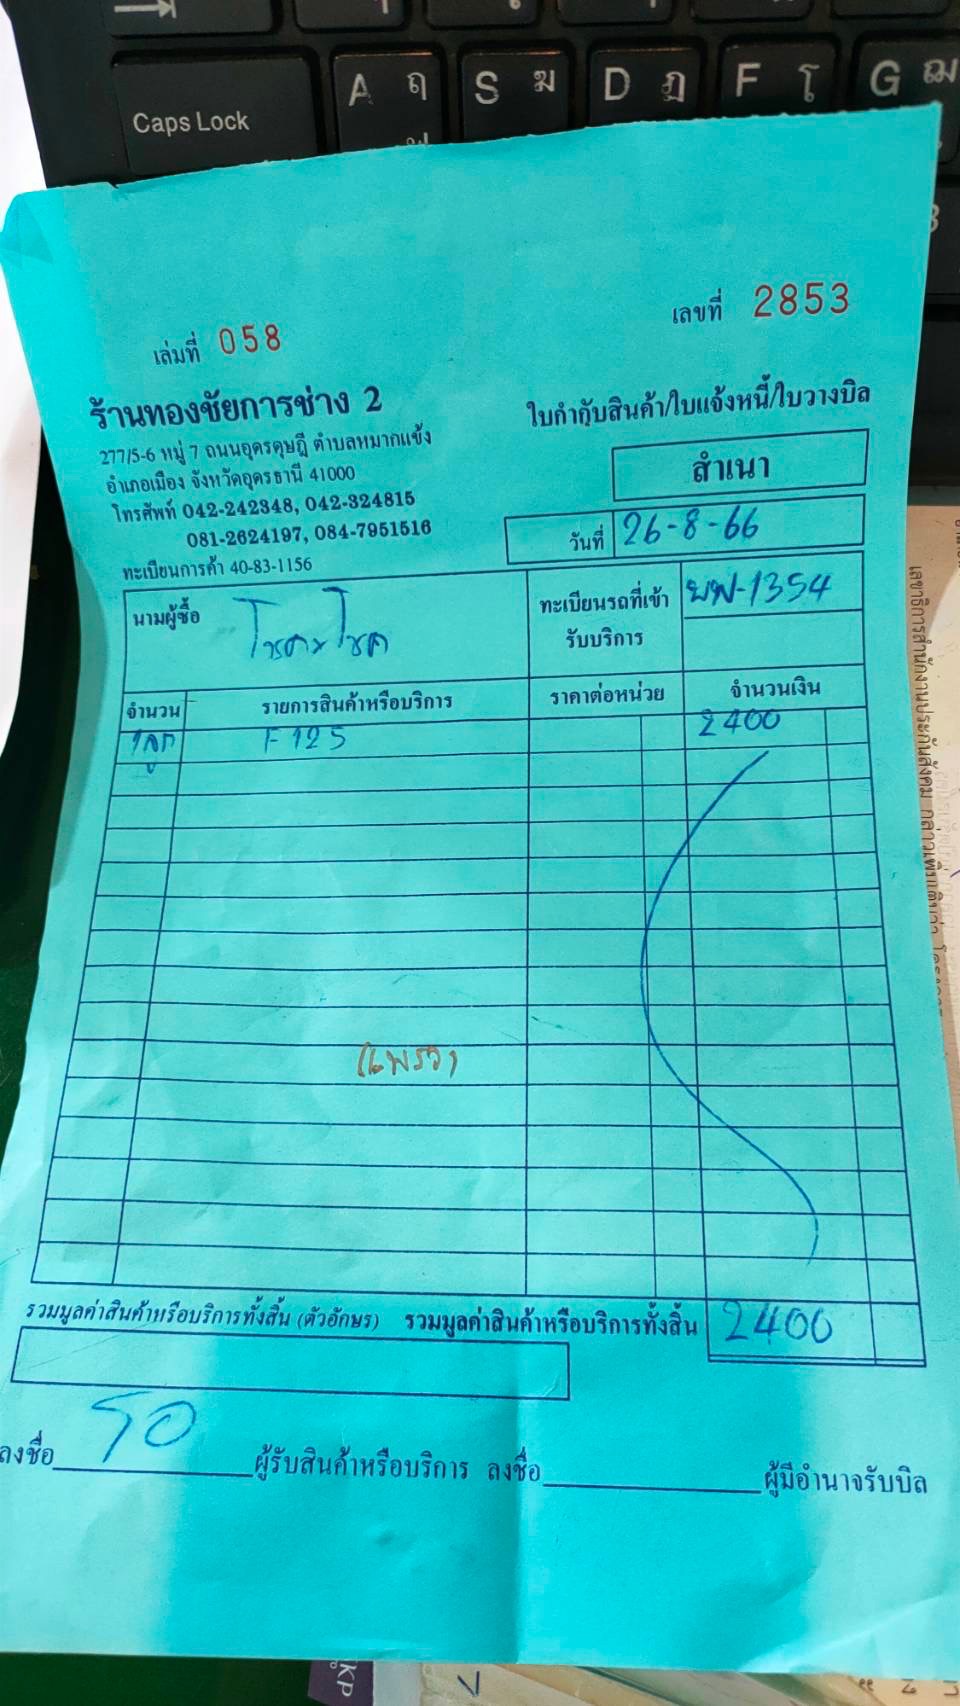 Caps Lock
A ฤ
S ฆ
D ฏ
F โ
G ฌ
เล่มที่ 058
เลขที่ 2853
ร้านทองชัยการช่าง 2
277/5-6 หมู่ 7 ถนนอุดรดุษฎี ตำบลหมากแข้ง
อำเภอเมือง จังหวัดอุดรธานี 41000
โทรศัพท์ 042-242348, 042-324815
081-2624197, 084-7951516
ทะเบียนการค้า 40-83-1156
ใบกำกับสินค้า/ใบแจ้งหนี้/ใบวางบิล
สำเนา
วันที่ 26-8-66
นามผู้ซื้อ
ทะเบียนรถที่เข้า
รับบริการ
บพ-1354
จำนวน รายการสินค้าหรือบริการ ราคาต่อหน่วย จำนวนเงิน
1ลูก F 125 2400
(แพรว)
รวมมูลค่าสินค้าหรือบริการทั้งสิ้น (ตัวอักษร) รวมมูลค่าสินค้าหรือบริการทั้งสิ้น 2400
ลงชื่อ ผู้รับสินค้าหรือบริการ ลงชื่อ ผู้มีอำนาจรับบิล